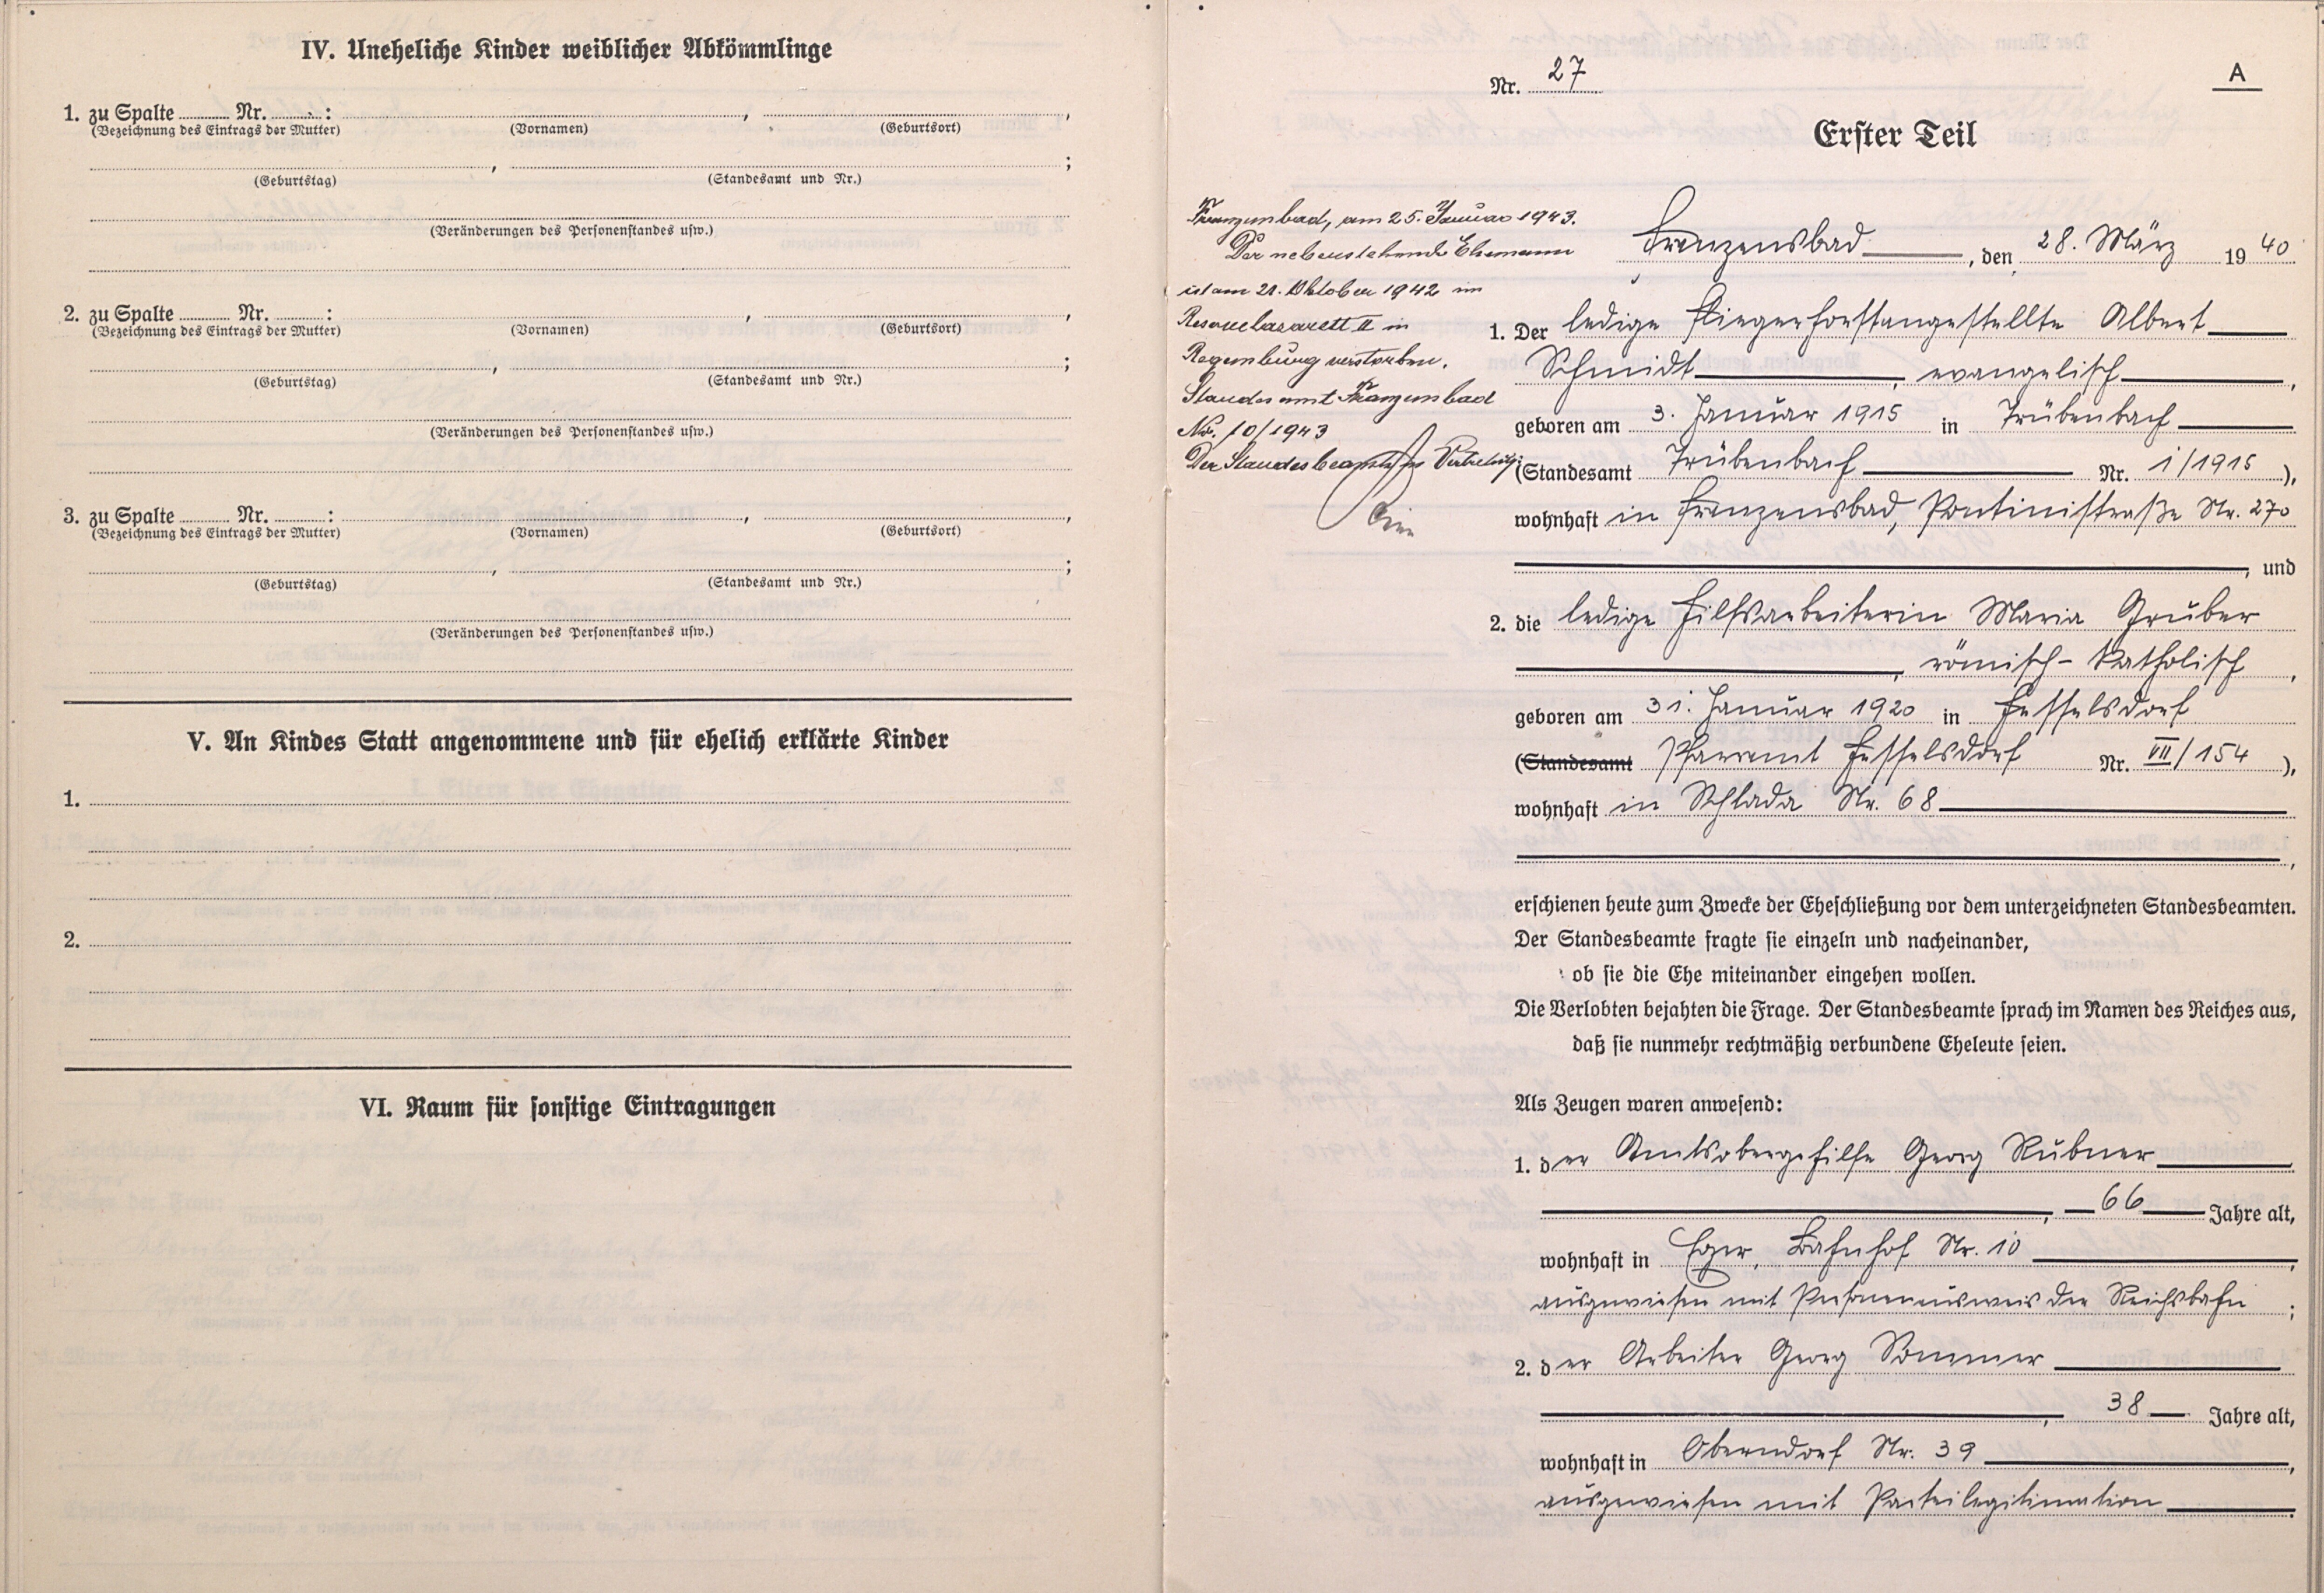 IV. Uneheliche Kinder weiblicher Abkömmlinge
1. zu Spalte ........ Nr. ........:
(Bezeichnung des Eintrags der Mutter) (Vornamen) (Geburtsort)
(Geburtstag) (Standesamt und Nr.)
(Veränderungen des Personenstandes usw.)
2. zu Spalte ........ Nr. ........:
(Bezeichnung des Eintrags der Mutter) (Vornamen) (Geburtsort)
(Geburtstag) (Standesamt und Nr.)
(Veränderungen des Personenstandes usw.)
3. zu Spalte ........ Nr. ........:
(Bezeichnung des Eintrags der Mutter) (Vornamen) (Geburtsort)
(Geburtstag) (Standesamt und Nr.)
(Veränderungen des Personenstandes usw.)
V. An Kindes Statt angenommene und für ehelich erklärte Kinder
1.
2.
VI. Raum für sonstige Eintragungen
A
Nr. 27
Erster Teil
Franzensbad, am 25. Januar 1943.
Der nebenstehende Ehemann
ist am 21. Oktober 1942 im
Reservelazarett II in
Regensburg verstorben.
Standesamt Franzensbad
No. 10/1943
Der Standesbeamte in Vertretung:
Franzensbad, den 28. März 1940
1. Der ledige Fliegerhorstangestellte Albert
Schmidt, evangelisch,
geboren am 3. Januar 1915 in Trübenbach
(Standesamt Trübenbach Nr. 1/1915),
wohnhaft in Franzensbad, Pontinistraße Nr. 270
, und
2. die ledige Hilfsarbeiterin Maria Gruber
, römisch-katholisch,
geboren am 31. Januar 1920 in Hesselsdorf
(Standesamt Pfarramt Hesselsdorf Nr. VII/154),
wohnhaft in Schlada Nr. 68
,
erschienen heute zum Zwecke der Eheschließung vor dem unterzeichneten Standesbeamten.
Der Standesbeamte fragte sie einzeln und nacheinander,
ob sie die Ehe miteinander eingehen wollen.
Die Verlobten bejahten die Frage. Der Standesbeamte sprach im Namen des Reiches aus,
daß sie nunmehr rechtmäßig verbundene Eheleute seien.
Als Zeugen waren anwesend:
1. der Amtsobergehilfe Georg Rubner
, 66 Jahre alt,
wohnhaft in Eger, Bahnhof Nr. 10,
ausgewiesen mit Personenausweis der Reichsbahn;
2. der Arbeiter Georg Sommer
, 38 Jahre alt,
wohnhaft in Oberndorf Nr. 39,
ausgewiesen mit Parteilegitimation.